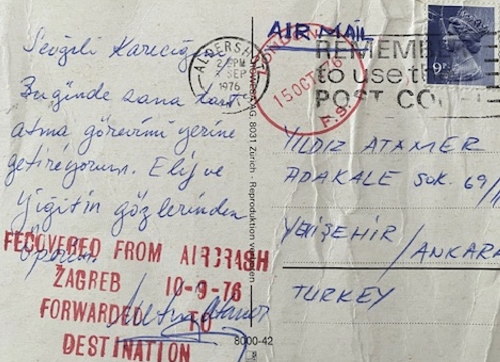 Sevgili Karıcığım
Bugünde sana kart
atma görevimi yerine
getiriyorum. Elif ve
Yiğitin gözlerinden
öperim.
RECOVERED FROM AIRCRASH
ZAGREB 10-9-76
FORWARDED TO
DESTINATION
AIR MAIL
ALDERSHOT
SEP
1976
LONDON
15 OCT 76
F.S.
REMEMBER
to use the
POST CO
9P
YILDIZ ATAMER
ADAKALE SOK. 69/
YENİŞEHİR / ANKARA
TURKEY
AG, 8031 Zürich - Reproduktion
8000-42